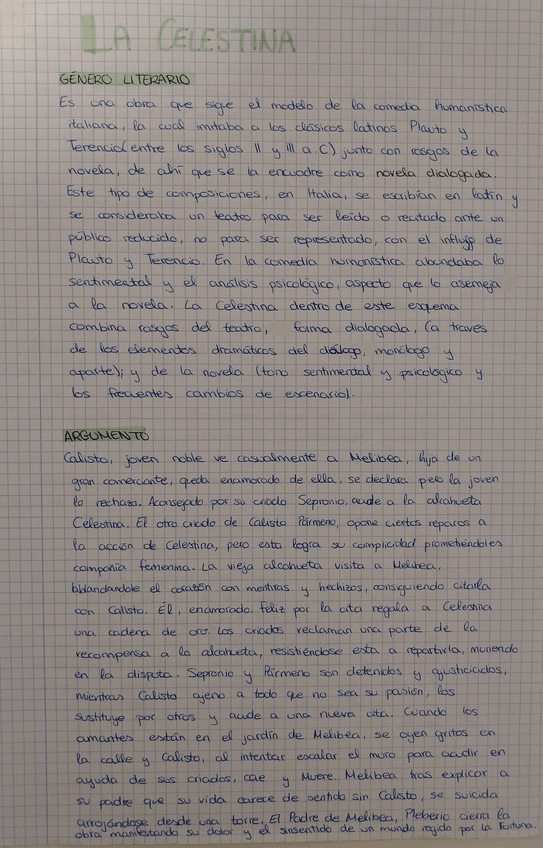 LA CELESTINA
GÉNERO LITERARIO
Es una obra que sigue el modelo de la comedia humanística
italiana, la cual imitaba a los clásicos latinos Plauto y
Terencio (entre los siglos II y III a.C) junto con rasgos de la
novela, de ahí que se la encuadre como novela dialogada.
Este tipo de composiciones, en Italia, se escribían en latín y
se consideraba un teatro para ser leído o recitado ante un
público reducido, no para ser representado, con el influjo de
Plauto y Terencio. En la comedia humanística abundaba lo
sentimental y el análisis psicológico, aspecto que lo asemeja
a la novela. La Celestina dentro de este esquema
combina rasgos del teatro, forma dialogada, (a traves
de los elementos dramáticos del diálogo, monólogo y
aparte); y de la novela (tono sentimental y psicológico y
los frecuentes cambios de escenario).
ARGUMENTO
Calisto, joven noble ve casualmente a Melibea, hija de un
gran comerciante, queda enamorado de ella, se declara pero la joven
lo rechaza. Aconsejado por su criado Sepronio, acude a la alcahueta
Celestina. El otro criado de Calisto Pármeno, opone ciertos reparos a
la acción de Celestina, pero esta logra su complicidad prometiéndoles
compañía femenina. La vieja alcahueta visita a Melibea,
ablandandole el corazón con mentiras y hechizos, consiguiendo citarla
con Calisto. Él, enamorado, feliz por la cita regala a Celestina
una cadena de oro. Los criados reclaman una parte de la
recompensa a la alcahueta, resistiéndose esta a repartirla, muriendo
en la disputa. Sepronio y Pármeno son detenidos y ajusticiados,
mientras Calisto ajeno a todo que no sea su pasión, los
sustituye por otros y acude a una nueva cita. Cuando los
amantes están en el jardín de Melibea, se oyen gritos en
la calle y Calisto, al intentar escalar el muro para acudir en
ayuda de sus criados, cae y Muere. Melibea tras explicar a
su padre que su vida carece de sentido sin Calisto, se suicida
arrojándose desde una torre. El Padre de Melibea, Pleberio cierra la
obra manifestando su dolor y el sinsentido de un mundo regido por la Fortuna.